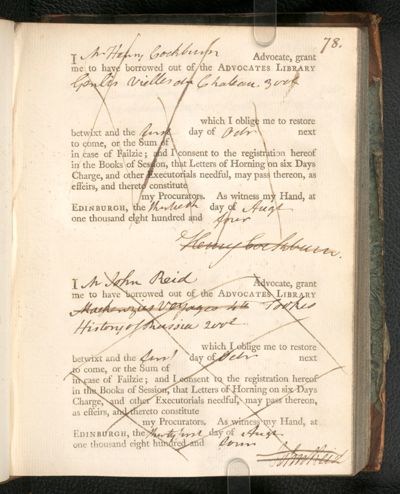 78.
I Mr Henry Cockburn Advocate, grant
me to have borrowed out of the ADVOCATES LIBRARY
Genlis Vieilles du Chateau 3 voll
which I oblige me to restore
betwixt and the first day of Octr next
to come, or the Sum of
in case of Failzie; and I consent to the registration hereof
in the Books of Session, that Letters of Horning on six Days
Charge, and other Executorials needful, may pass thereon, as
effeirs, and thereto constitute
my Procurators. As witness my Hand, at
EDINBURGH, the thirtieth day of Augt
one thousand eight hundred and four
Henry Cockburn.
I Mr John Reid Advocate, grant
me to have borrowed out of the ADVOCATES LIBRARY
Mackenzies Voyages 4to Tookes
History of Russia 2 voll
which I oblige me to restore
betwixt and the first day of Octr next
to come, or the Sum of
in case of Failzie; and I consent to the registration hereof
in the Books of Session, that Letters of Horning on six Days
Charge, and other Executorials needful, may pass thereon,
as effeirs, and thereto constitute
my Procurators. As witness my Hand, at
EDINBURGH, the thirty first day of Augt
one thousand eight hundred and four
John Reid